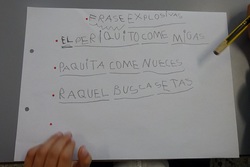 FRASE EXPLOSIVA
EL PERIQUITO COME MIGAS
PAQUITA COME NUECES
RAQUEL BUSCA SETAS